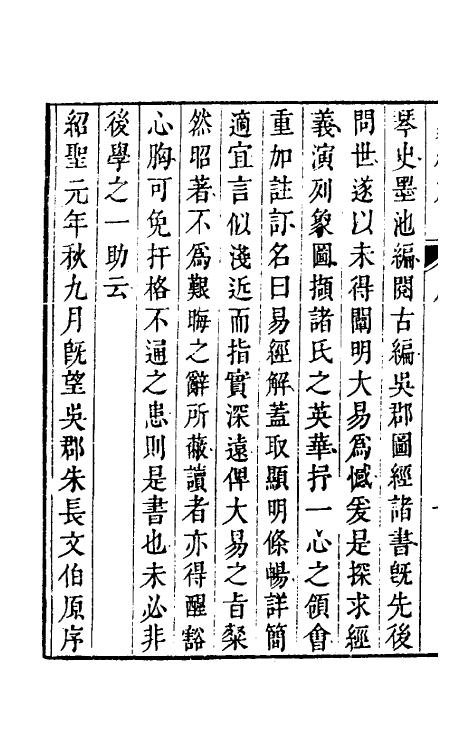 琴史墨池編閱古編吳郡圖經諸書旣先後
問世遂以未得闡明大易爲憾爰是探求經
義演列象圖擷諸氏之英華抒一心之領會
重加註訂名曰易經解蓋取顯明條暢詳簡
適宜言似淺近而指實深遠俾大易之旨粲
然昭著不爲艱晦之辭所蔽讀者亦得醒豁
心胸可免扞格不通之患則是書也未必非
後學之一助云
紹聖元年秋九月旣望吳郡朱長文伯原序